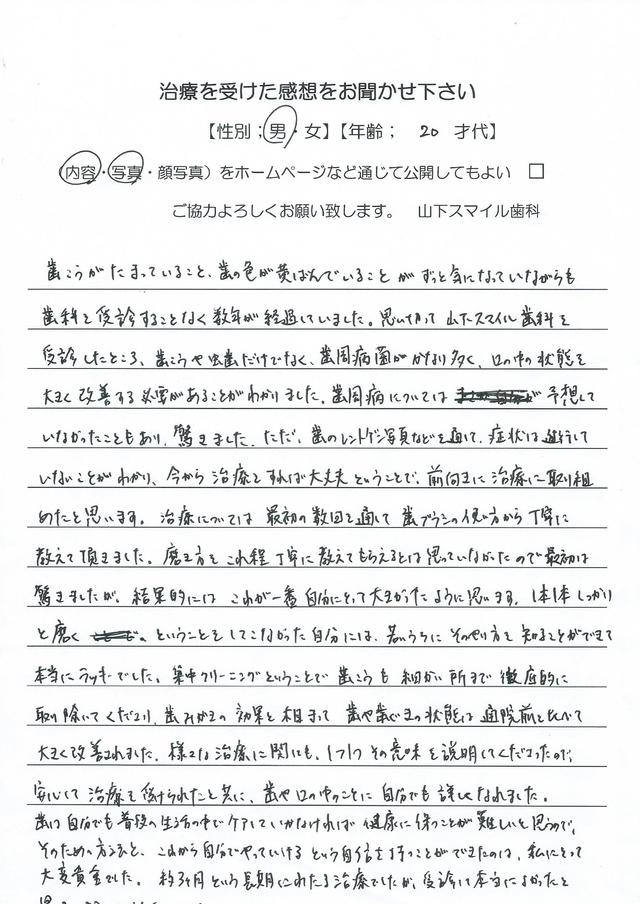 治療を受けた感想をお聞かせ下さい
【性別；男・女】【年齢； 20 才代】
（内容・写真・顔写真）をホームページなど通じて公開してもよい □
ご協力よろしくお願い致します。 山下スマイル歯科
歯こうがたまっていること、歯の色が黄ばんでいることがずっと気になっていながらも
歯科を受診することなく数年が経過していました。思い切って山下スマイル歯科を
受診したところ、歯こうや虫歯だけでなく、歯周病菌がかなり多く、口の中の状態を
大きく改善する必要があることがわかりました。歯周病については 予想して
いなかったこともあり、驚きました。ただ、歯のレントゲン写真などを通して、症状は進行して
いないことがわかり、今から治療をすれば大丈夫ということで、前向きに治療に取り組
めたと思います。治療については最初の数回を通して歯ブラシの使い方から丁寧に
教えて頂きました。磨き方をこれ程丁寧に教えてもらえるとは思っていなかったので最初は
驚きましたが、結果的にはこれが一番自分にとって大きかったように思います。1本1本しっかり
と磨く ということをしてこなかった自分には、若いうちにそのやり方を知ることができて
本当にラッキーでした。集中クリーニングということで歯こうも細かい所まで徹底的に
取り除いてくださり、歯みがきの効果と相まって歯や歯ぐきの状態は通院前と比べて
大きく改善されました。様々な治療に関にも、1つ1つその意味を説明してくださったので、
安心して治療を受けられたと共に、歯や口の中のことに自分でも詳しくなれました。
歯は自分でも普段の生活の中でケアしていかなければ健康に保つことが難しいと思うので、
そのための方法と、これから自分でやっていけるという自信を持つことができたのは、私にとって
大変貴重でした。約3ヶ月という長期にわたる治療でしたが、受診して本当によかったと